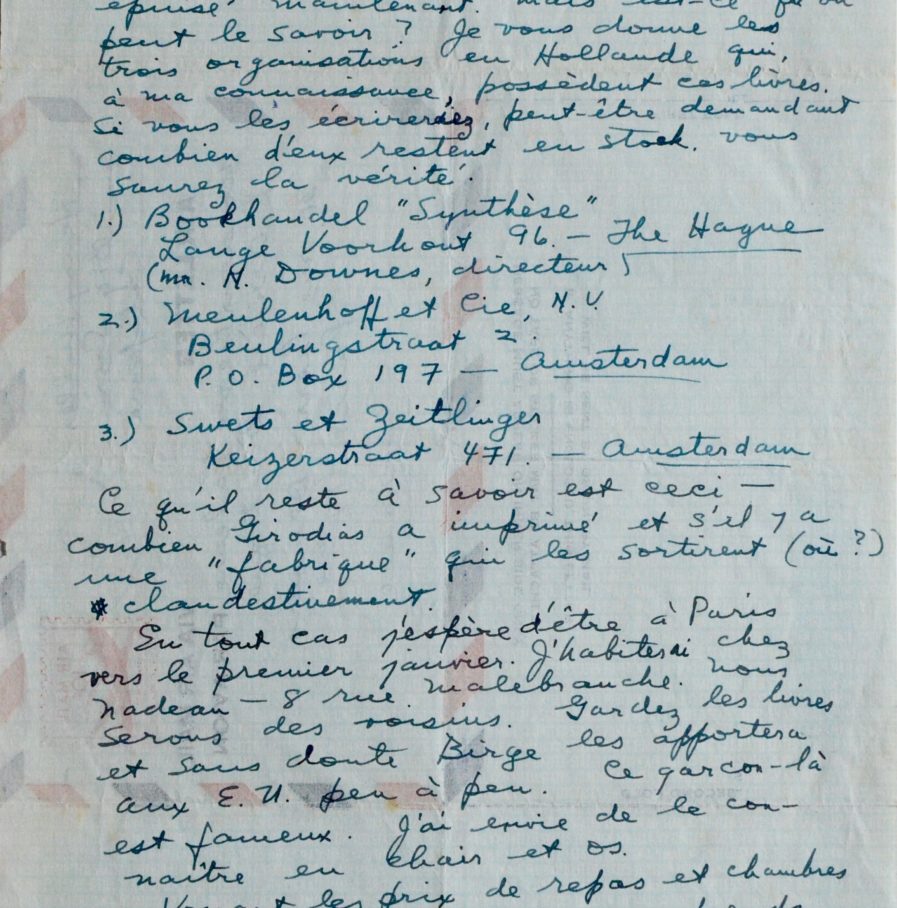 épuisé maintenant. Mais est-ce qu'on
peut le savoir? Je vous donne les
trois organisations en Hollande qui,
à ma connaissance, possèdent ces livres.
Si vous les écrireriez, peut-être demandant
combien d'eux restent en stock. vous
saurez la vérité.
1.) Bookhandel "Synthèse"
Lange Voorhout 96. — The Hague
(mr. N. Downes, directeur)
2.) Meulenhoff et Cie, N.V.
Beulingstraat 2.
P.O. Box 197 — Amsterdam
3.) Swets et Zeitlinger
Keizerstraat 471. — Amsterdam
Ce qu'il reste à savoir est ceci —
combien Girodias a imprimé et s'il y a
une "fabrique" qui les sortirent (où?)
clandestinement.
En tout cas j'espère d'être à Paris
vers le premier janvier. J'habiterai chez
Nadeau — 8 rue Malebranche. Nous
serons des voisins. Gardez les livres
et sans doute Birge les apportera
aux E.U. peu à peu. Ce garcon-là
est fameux. J'ai envie de le con-
naître en chair et os.
les prix de repas et chambres